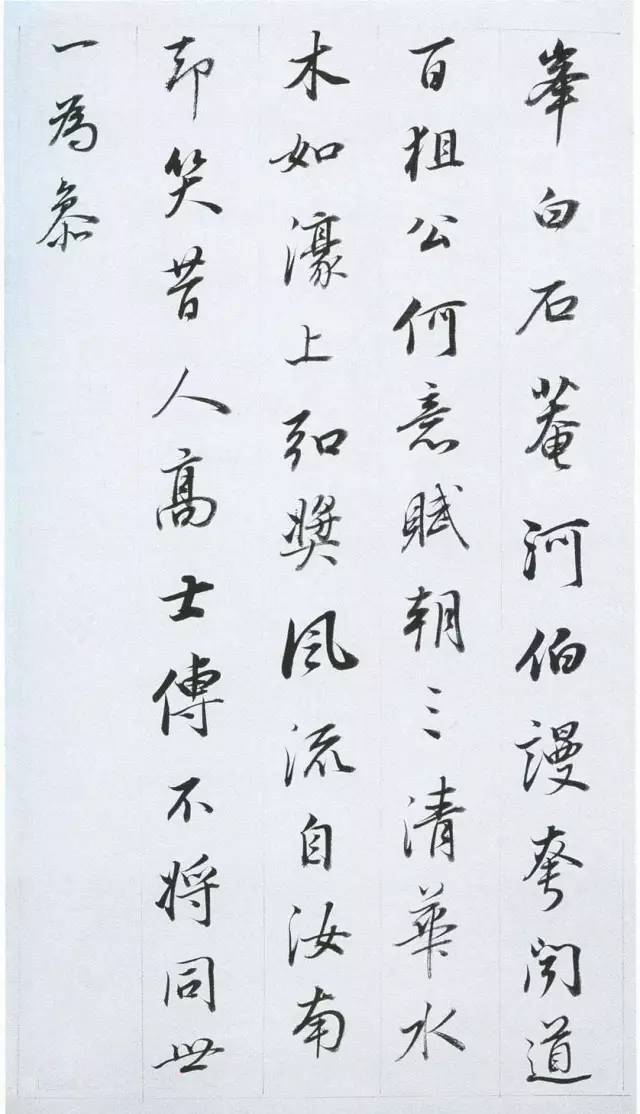 峯白石菴河伯謾夸聞道
百狙公何意賦朝三清華水
木如濠上弘獎風流自汝南
却笑昔人高士傳不將同世
一為叅